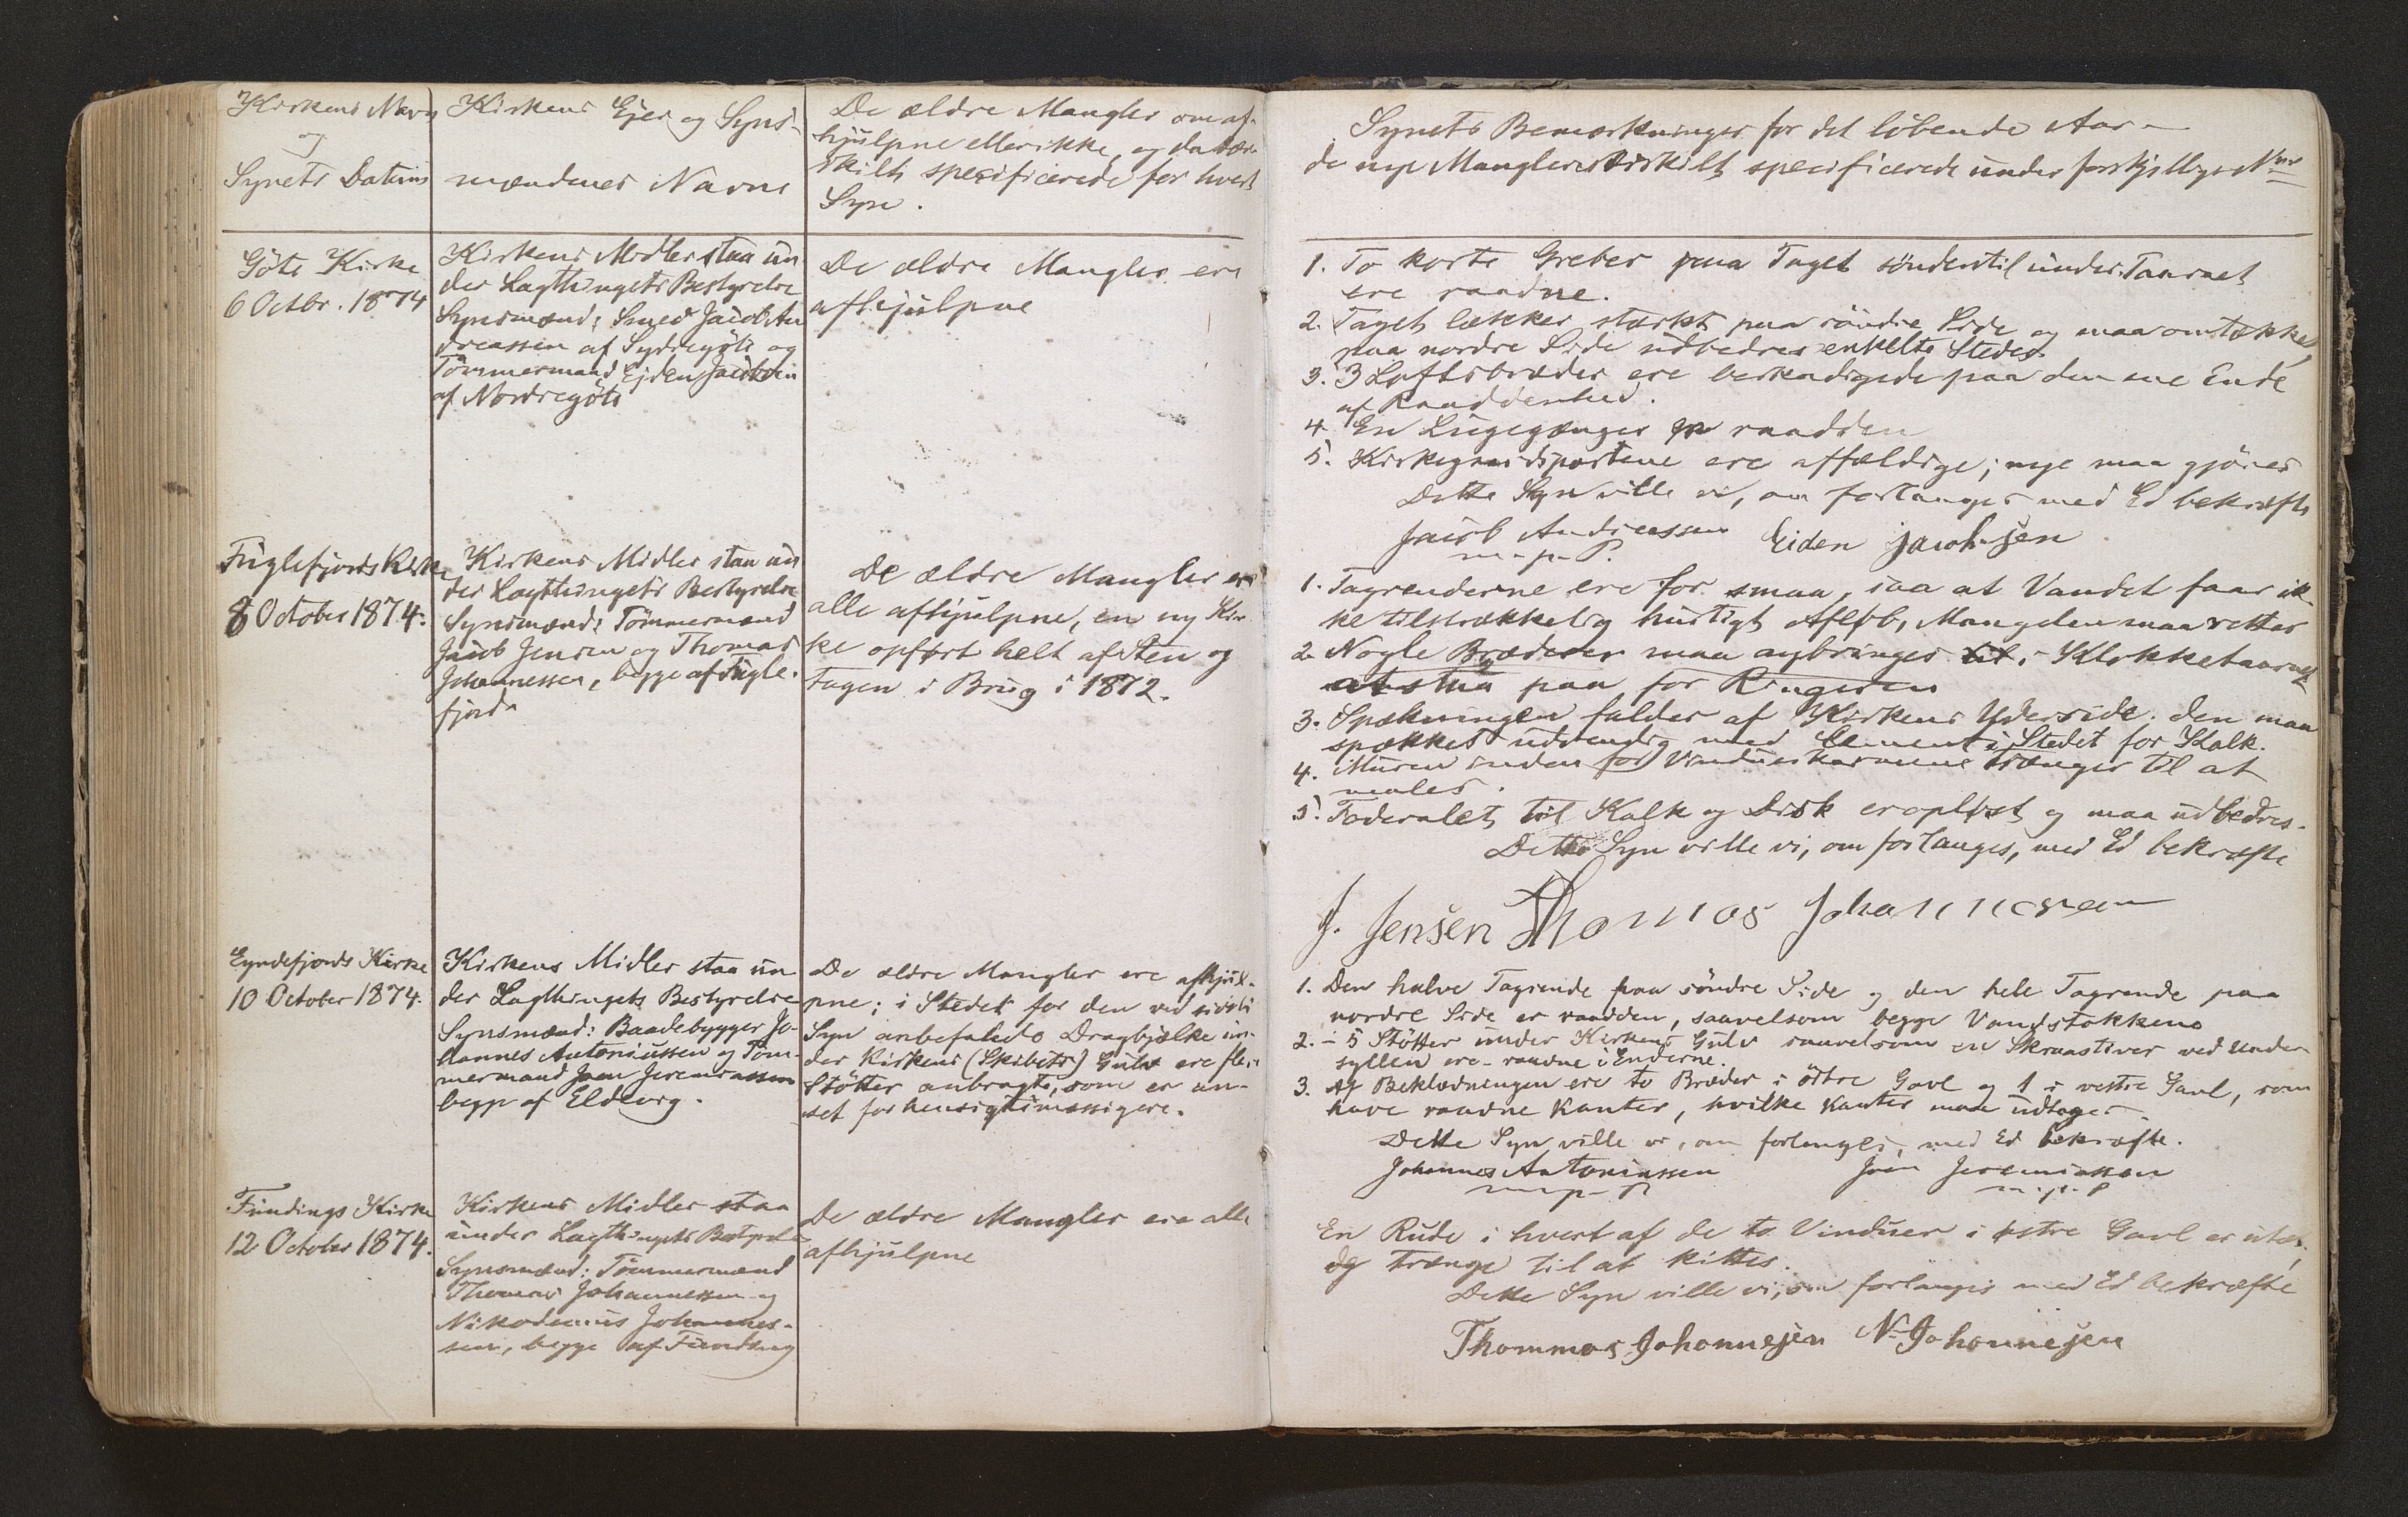 Kirkens Navn
og
Synets Datum
Kirkens Ejer og Syns-
mændenes Navne
De ældre Mangler om af-
hjulpne eller ikke, og da sær-
skilt specificerede for hvert
Syn.
Göte Kirke
6 Octbr. 1874
Kirkens Midler staa un
der Lagthingets Bestyrelse
Synsmænd: Smed Jacob An
dreassen af Sydregöte og
Tömmermand Ejden Jacobsen
af Nordregöte
De ældre Mangler ere
afhjulpne
Fuglefjords Kirke
8 October 1874.
Kirkens Midler staa un
der Lagthingets Bestyrelse
Synsmænd: Tömmermænd
Jacob Jensen og Thomas
Johannessen, begge af Fugle-
fjord
De ældre Mangler ere
alle afhjulpne, en ny Kir
ke opført helt af Sten og
tagen i Brug i 1872.
Eyndefjords Kirke
10 October 1874.
Kirkens Midler staa un
der Lagthingets Bestyrelse
Synsmænd: Baadebygger Jo-
hannes Antoniussen og Töm-
mermand Joen Jeremiassen
begge af Eldevig.
De ældre Mangler ere afhjul-
pne; i Stedet for den ved sidste
Syn anbefalede Dragbjælke un-
der Kirkens (Skibets) Gulv ere flere
Støtter anbragte, som er an-
set for hensigtsmæssigere.
Fundings Kirke
12 October 1874.
Kirkens Midler staa
under Lagthingets Bestyrelse
Synsmænd: Tömmermænd
Thomas Johannessen og
Nikodemus Johannes-
sen, begge af Funding
De ældre Mangler ere alle
afhjulpne
Synets Bemærkninger for det löbende Aar -
de nye Mangler særskilt specificerede under forskjellige Nre
1. To korte Greber paa Taget söndentil under Taarnet
ere raadne.
2. Taget lækker stærkt paa söndre Side og maa omtækkes,
paa nordre Side udbedres enkelte Steder
3. 3 Loftsbrædder ere beskadigede paa den ene Ende
af Raaddenhed.
4. En Lugegænger er raadden
5. Kirkegaardsportene ere affældige; nye maa gjöres
Dette Syn ville vi, om forlanges med Ed bekræfte
Jacob Andreassen Eiden Jacobsen
m. p. P.
1. Tagrenderne ere for smaa, saa at Vandet faar ik-
ke tilstrækkelig hurtigt Afløb, Mangelen maa rettes
2. Nogle Brædder maa anbringes i Klokketaarnet
at staa paa for Ringeren
3. Spækningen falder af Kirkens Yderside. den maa
spækkes udvendig med Cement i Stedet for Kalk.
4. Muren inden for Vindueskarmene trænger til at
males.
5. Foderalet til Kalk og Disk er opløst og maa udbedres.
Dette Syn ville vi, om forlanges, med Ed bekræfte
J. Jensen Thomas Johannesen
1. Den halve Tagrende paa söndre Side og den hele Tagrende paa
nordre Side er raadden, saavelsom begge Vandstokkene
2. - 5 Støtter under Kirkens Gulv saavelsom en Skraastiver ved Under-
syllen ere raadne i Enderne.
3. Af Beklædningen ere to Bræder i östre Gavl og 1 i vestre Gavl, som
have raadne Kanter, hvilke Kanter maa udtages
Dette Syn ville vi, om forlanges, med Ed bekræfte.
Johannes Antoniussen Joen Jeremiassen
m. p. P. m. p. P
En Rude i hvert af de to Vinduer i østre Gavl er utæt,
og trænge til at kittes.
Dette Syn ville vi, om forlanges med Ed bekræfte
Thommas Johannesen N. Johannesen